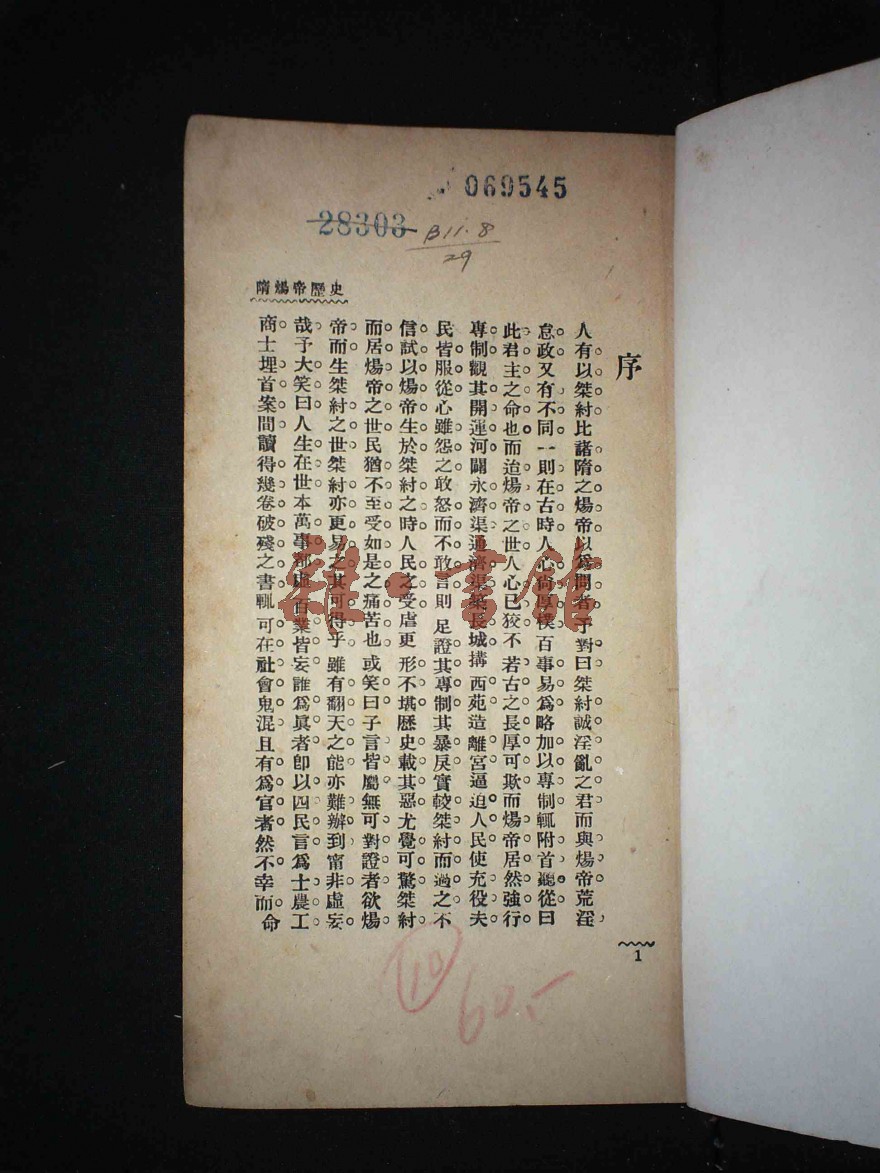 069545
28303
B11.8
29
隋煬帝歷史
序
人有以桀紂比諸隋之煬帝以爲問者予對曰桀紂誠淫亂之君而與煬帝荒淫
怠政又有不同一則在古時人心尚厚樸百事易爲略加以專制輒附首聽從曰
此君主之命也而迨煬帝之世人心已狡不若古之長厚可欺而煬帝居然強行
專制觀其開運河闢永濟渠通濟渠築長城搆西苑造離宮逼迫人民使充役夫
民皆服從心雖怨之敢怒而不敢言則足證其專制其暴戾實較桀紂而過之不
信試以煬帝生於桀紂之時人民之受虐更形不堪歷史載其惡尤覺可驚桀紂
而居煬帝之世民猶不至受如是之痛苦也或笑曰子言皆屬無可對證者欲煬
帝而生桀紂之世桀紂亦更易之其可得乎雖有翻天之能亦難辦到甯非虛妄
哉予大笑曰人生在世本萬事都虛百業皆妄誰爲眞者卽以四民言爲士農工
商士埋首案間讀得幾卷破殘之書輒可在社會鬼混且有爲官者然不幸而命
1
雜·書館
110
60.5